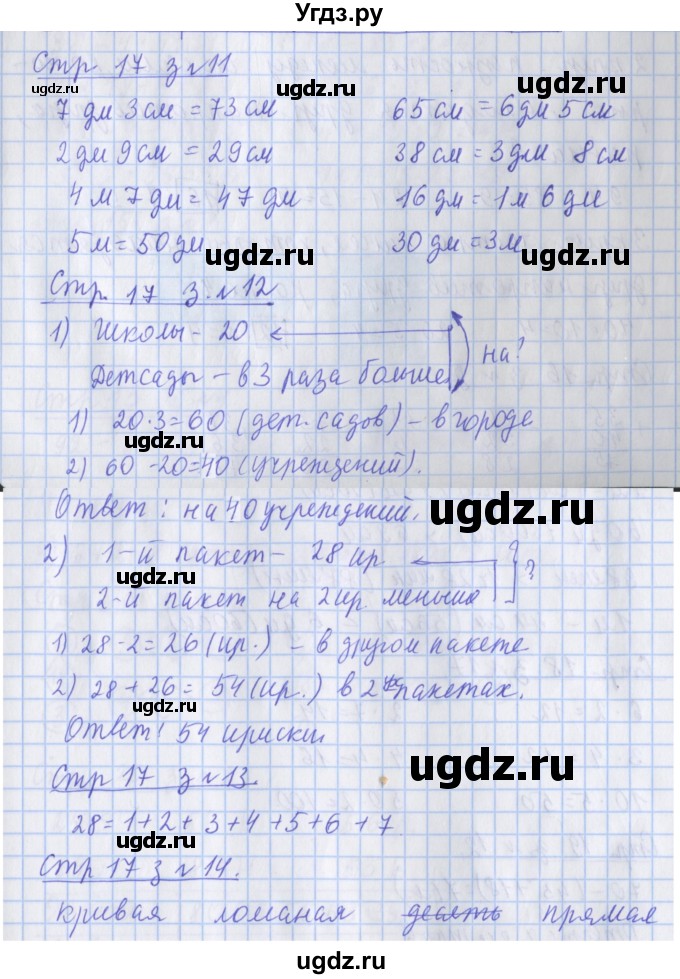 Угдз.ру
Стр 17 з №11
7 дм 3 см = 73 см 65 см = 6 дм 5 см
2 дм 9 см = 29 см 38 см = 3 дм 8 см
4 м 7 дм = 47 дм 16 дм = 1 м 6 дм
5 м = 50 дм 30 дм = 3 м
Стр. 17 з. №12
1) Школы - 20
Детсады - в 3 раза больше на?
1) 20·3=60 (дет. садов) - в городе
2) 60-20=40 (учреждений).
Ответ: на 40 учреждений.
2) 1-й пакет - 28 ир
2-й пакет на 2 ир меньше ?
1) 28-2=26 (ир.) - в другом пакете
2) 28+26= 54 (ир.) в 2ух пакетах.
Ответ! 54 ириски
Стр 17 з №13.
28=1+2+3+4+5+6+7.
Стр 17 з №14.
кривая ломаная десять прямая
ugdz.ru
ugdz.ru
ugdz.ru
ugdz.ru
ugdz.ru
ugdz.ru
ugdz.ru
ugdz.ru
ugdz.ru
ugdz.ru
ugdz.ru
ugdz.ru
ugdz.ru
ugdz.ru